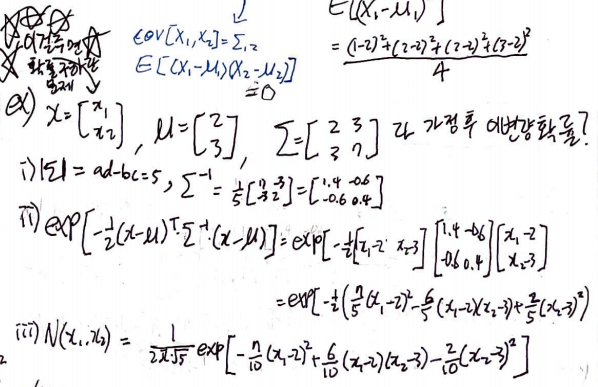 E[(X₁-μ₁)]
이걸주면
확률구하란
문제
cov[X₁,X₂]=Σ₁,₂
E[(X₁-μ₁)(X₂-μ₂)]
=0
= (1-2)²+(2-2)²+(2-2)²+(3-2)² / 4
ex) x=[x₁ x₂], μ=[2 3], Σ=[2 3 3 7] 라 가정후 이변량확률?
i) |Σ| = ad-bc=5, Σ⁻¹ = 1/5 [7 -3 -3 2] = [1.4 -0.6 -0.6 0.4]
ii) exp[-1/2(x-μ)ᵀ·Σ⁻¹·(x-μ)] = exp[-1/2[x₁-2 x₂-3] [1.4 -0.6 -0.6 0.4] [x₁-2 x₂-3]
= exp[-1/2(7/5(x₁-2)²-6/5(x₁-2)(x₂-3)+2/5(x₂-3)²)
iii) N(x₁,x₂) = 1/2π√5 exp[-7/10(x₁-2)²+6/10(x₁-2)(x₂-3)-2/10(x₂-3)²]